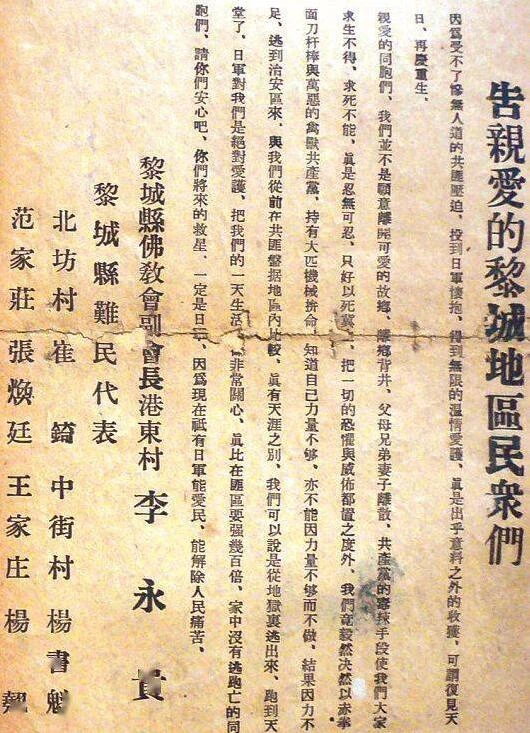 告親愛的黎城地區民衆們
因爲受不了慘無人道的共匪壓迫、投到日軍懷抱、得到無限的溫情愛護、眞是出乎意料之外的收獲、可謂復見天
日、再慶重生、
親愛的同胞們、我們並不是願意離開可愛的故鄉、離鄉背井、父母兄弟妻子離散、共產黨的毒辣手段使我們大家
求生不得、求死不能、眞是忍無可忍、只好以死冀、把一切的恐懼與威怖都置之度外、我們竟毅然决然以赤拳
面刀杆棒與萬惡的禽獸共產黨、持有大匹機械拚命、知道自己力量不够、亦不能因力量不够而不做、結果因力不
足、逃到治安區來、與我們從前在共匪盤据地區內比較、眞有天涯之別、我們可以說是從地獄裏逃出來、跑到天
堂了、日軍對我們是絕對愛護、把我們的一天生活、非常關心、眞比在匪區要强幾百倍、家中沒有逃跑亡的同
胞們、請你們安心吧、你們將來的救星、一定是日、因爲現在祗有日軍能愛民、能解除人民痛苦、
黎城縣佛敎會副會長港東村 李永貴
黎城縣難民代表
北坊村崔錡 中街村楊書魁
范家莊張煥廷 王家庄楊